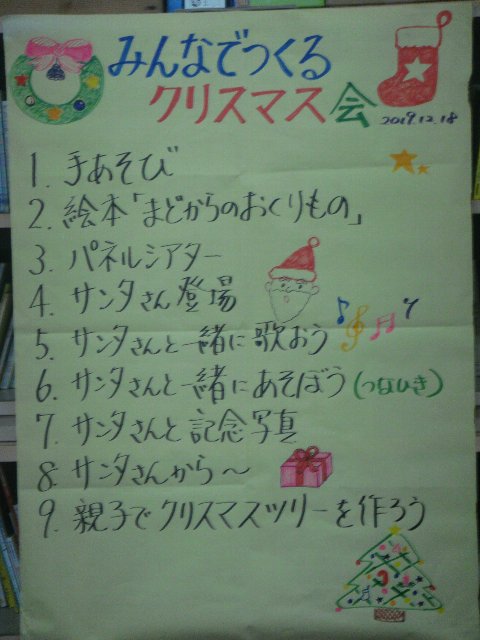 みんなでつくる
クリスマス会
2019.12.18
1. 手あそび
2. 絵本「まどからのおくりもの」
3. パネルシアター
4. サンタさん登場
5. サンタさんと一緒に歌おう
6. サンタさんと一緒にあそぼう(つなひき)
7. サンタさんと記念写真
8. サンタさんから～
9. 親子でクリスマスツリーを作ろう